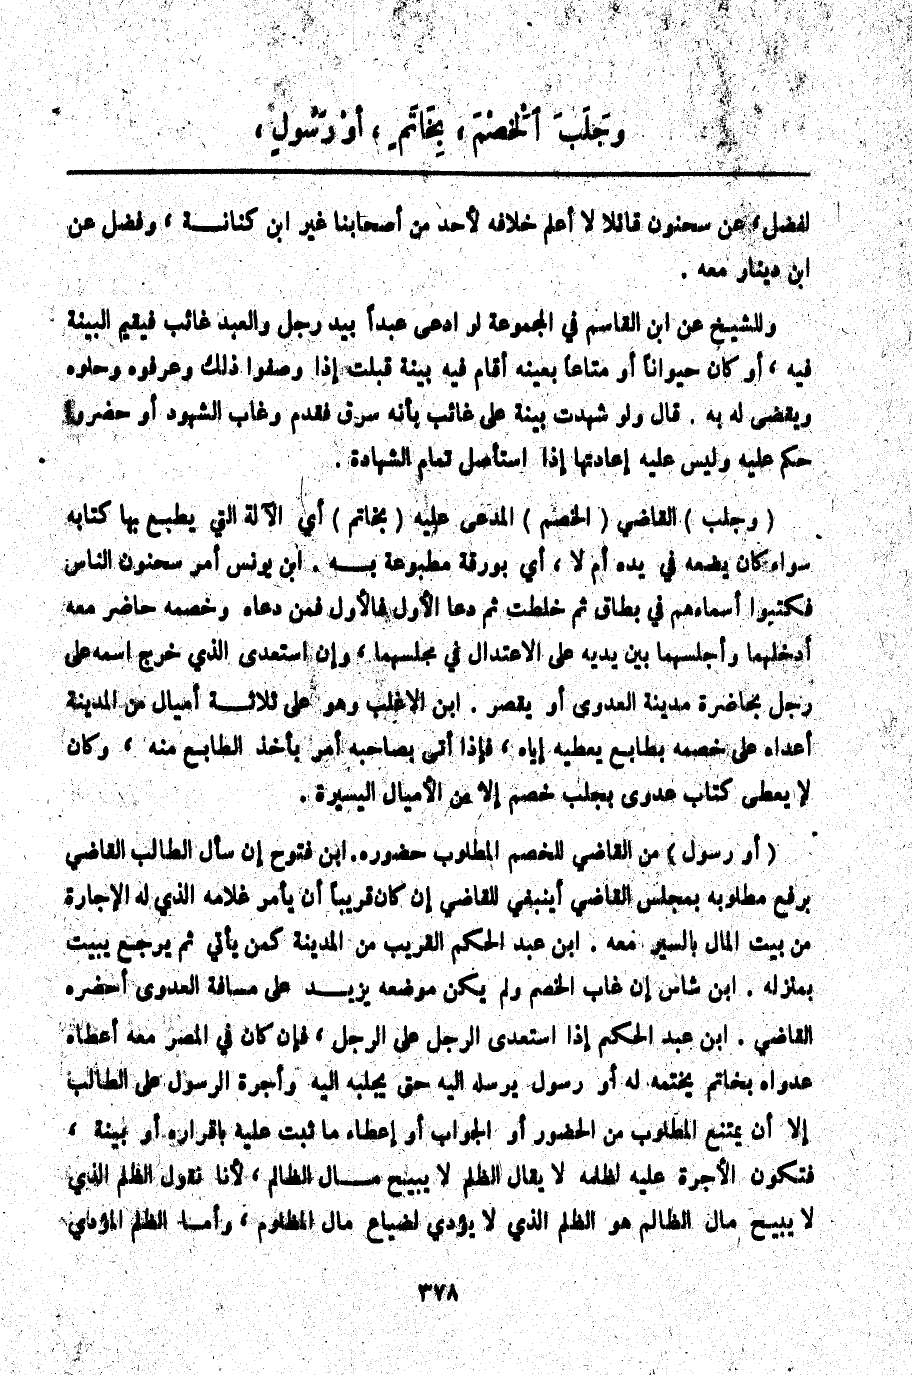 وَجَلَبَ ٱلْخَصْمَ ، بِخَاتَمٍ ، أَوْ رَسُولٍ ،
لفضل ، عن سحنون قائلا لا أعلم خلافه لأحد من أصحابنا غير ابن كنانة ، وفضل عن
ابن دينار معه .
وللشيخ عن ابن القاسم في المجموعة لو ادعى عبداً بيد رجل والعبد غائب فيقيم البينة
فيه ، أو كان حيواناً أو متاعاً بعينه أقام فيه بينة قبلت إذا وصفوا ذلك وعرفوه وحلوه
ويقضى له به . قال ولو شهدت بينة على غائب بأنه سرق فقدم وغاب الشهود أو حضروا
حكم عليه وليس عليه إعادتها إذا استأصل تمام الشهادة .
( وجلب ) القاضي ( الخصم ) المدعى عليه ( بخاتم ) أي الآلة التي يطبع بها كتابه
سواء كان يضعه في يده أم لا ، أي بورقة مطبوعة به . ابن يونس أمر سحنون الناس
فكتبوا أسماءهم في بطاق ثم خلطت ثم دعا الأول فالأول فمن دعاه وخصمه حاضر معه
أدخلهما وأجلسهما بين يديه على الاعتدال في مجلسهما ، وإن استعدى الذي خرج اسمه على
رجل بحاضرة مدينة العدوى أو يقصر . ابن الاغلب وهو على ثلاثة أميال من المدينة
أعداه على خصمه بطابع يعطيه إياه ، فإذا أتى بصاحبه أمر بأخذ الطابع منه ، وكان
لا يعطى كتاب عدوى بجلب خصم إلا من الأميال اليسيرة .
( أو رسول ) من القاضي للخصم المطلوب حضوره . ابن فتوح إن سأل الطالب القاضي
برفع مطلوبه بمجلس القاضي أينبغي للقاضي إن كان قريباً أن يأمر غلامه الذي له الإجارة
من بيت المال بالسير معه . ابن عبد الحكم القريب من المدينة كمن يأتي ثم يرجع يبيت
بمنزله . ابن شاس إن غاب الخصم ولم يكن موضعه يزيد على مسافة العدوى أحضره
القاضي . ابن عبد الحكم إذا استعدى الرجل على الرجل ، فإن كان في المصر معه أعطاه
عدواه بخاتم يختمه له أو رسول يرسله اليه حتى يجلبه اليه وأجرة الرسول على الطالب
إلا أن يمتنع المطلوب من الحضور أو الجواب أو إعطاء ما ثبت علية باقراره أو بينة ،
فتكون الأجرة عليه لظلمه لا يقال الظلم لا يبيح مال الظالم ، لأنا نقول الظلم الذي
لا يبيح مال الظالم هو الظلم الذي لا يؤدي لضياع مال المظلوم ، وأما الظلم المؤدي
٣٧٨